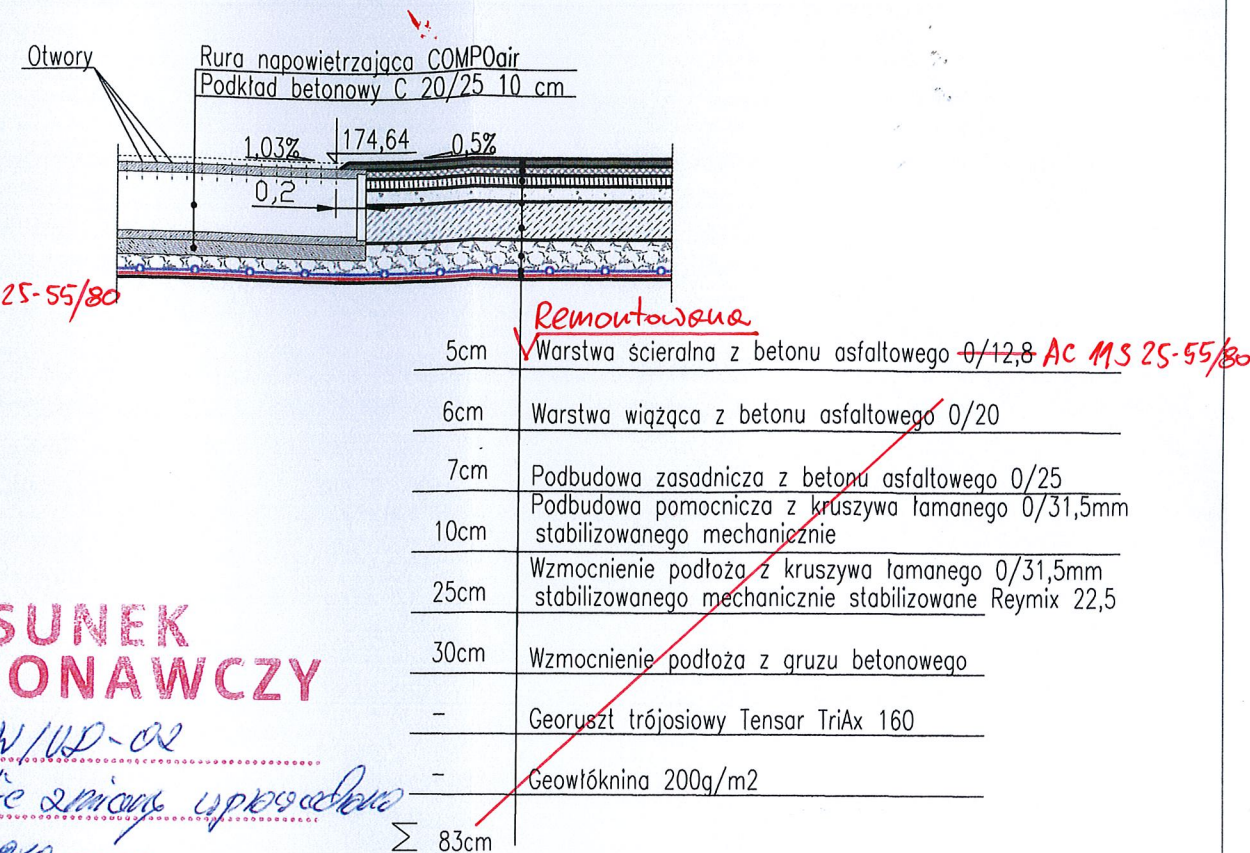 Otwory
Rura napowietrzająca COMPOair
Podkład betonowy C 20/25 10 cm
1,03%
174,64
0,5%
0,2
25-55/80
Remontowana
5cm Warstwa ścieralna z betonu asfaltowego 0/12,8 AC 11S 25-55/80
6cm Warstwa wiążąca z betonu asfaltowego 0/20
7cm Podbudowa zasadnicza z betonu asfaltowego 0/25
Podbudowa pomocnicza z kruszywa łamanego 0/31,5mm
10cm stabilizowanego mechanicznie
Wzmocnienie podłoża z kruszywa łamanego 0/31,5mm
25cm stabilizowanego mechanicznie stabilizowane Reymix 22,5
30cm Wzmocnienie podłoża z gruzu betonowego
- Georuszt trójosiowy Tensar TriAx 160
- Geowłóknina 200g/m2
Σ 83cm
SUNEK
ONAWCZY
/UD-02
zmiany wprowadzono